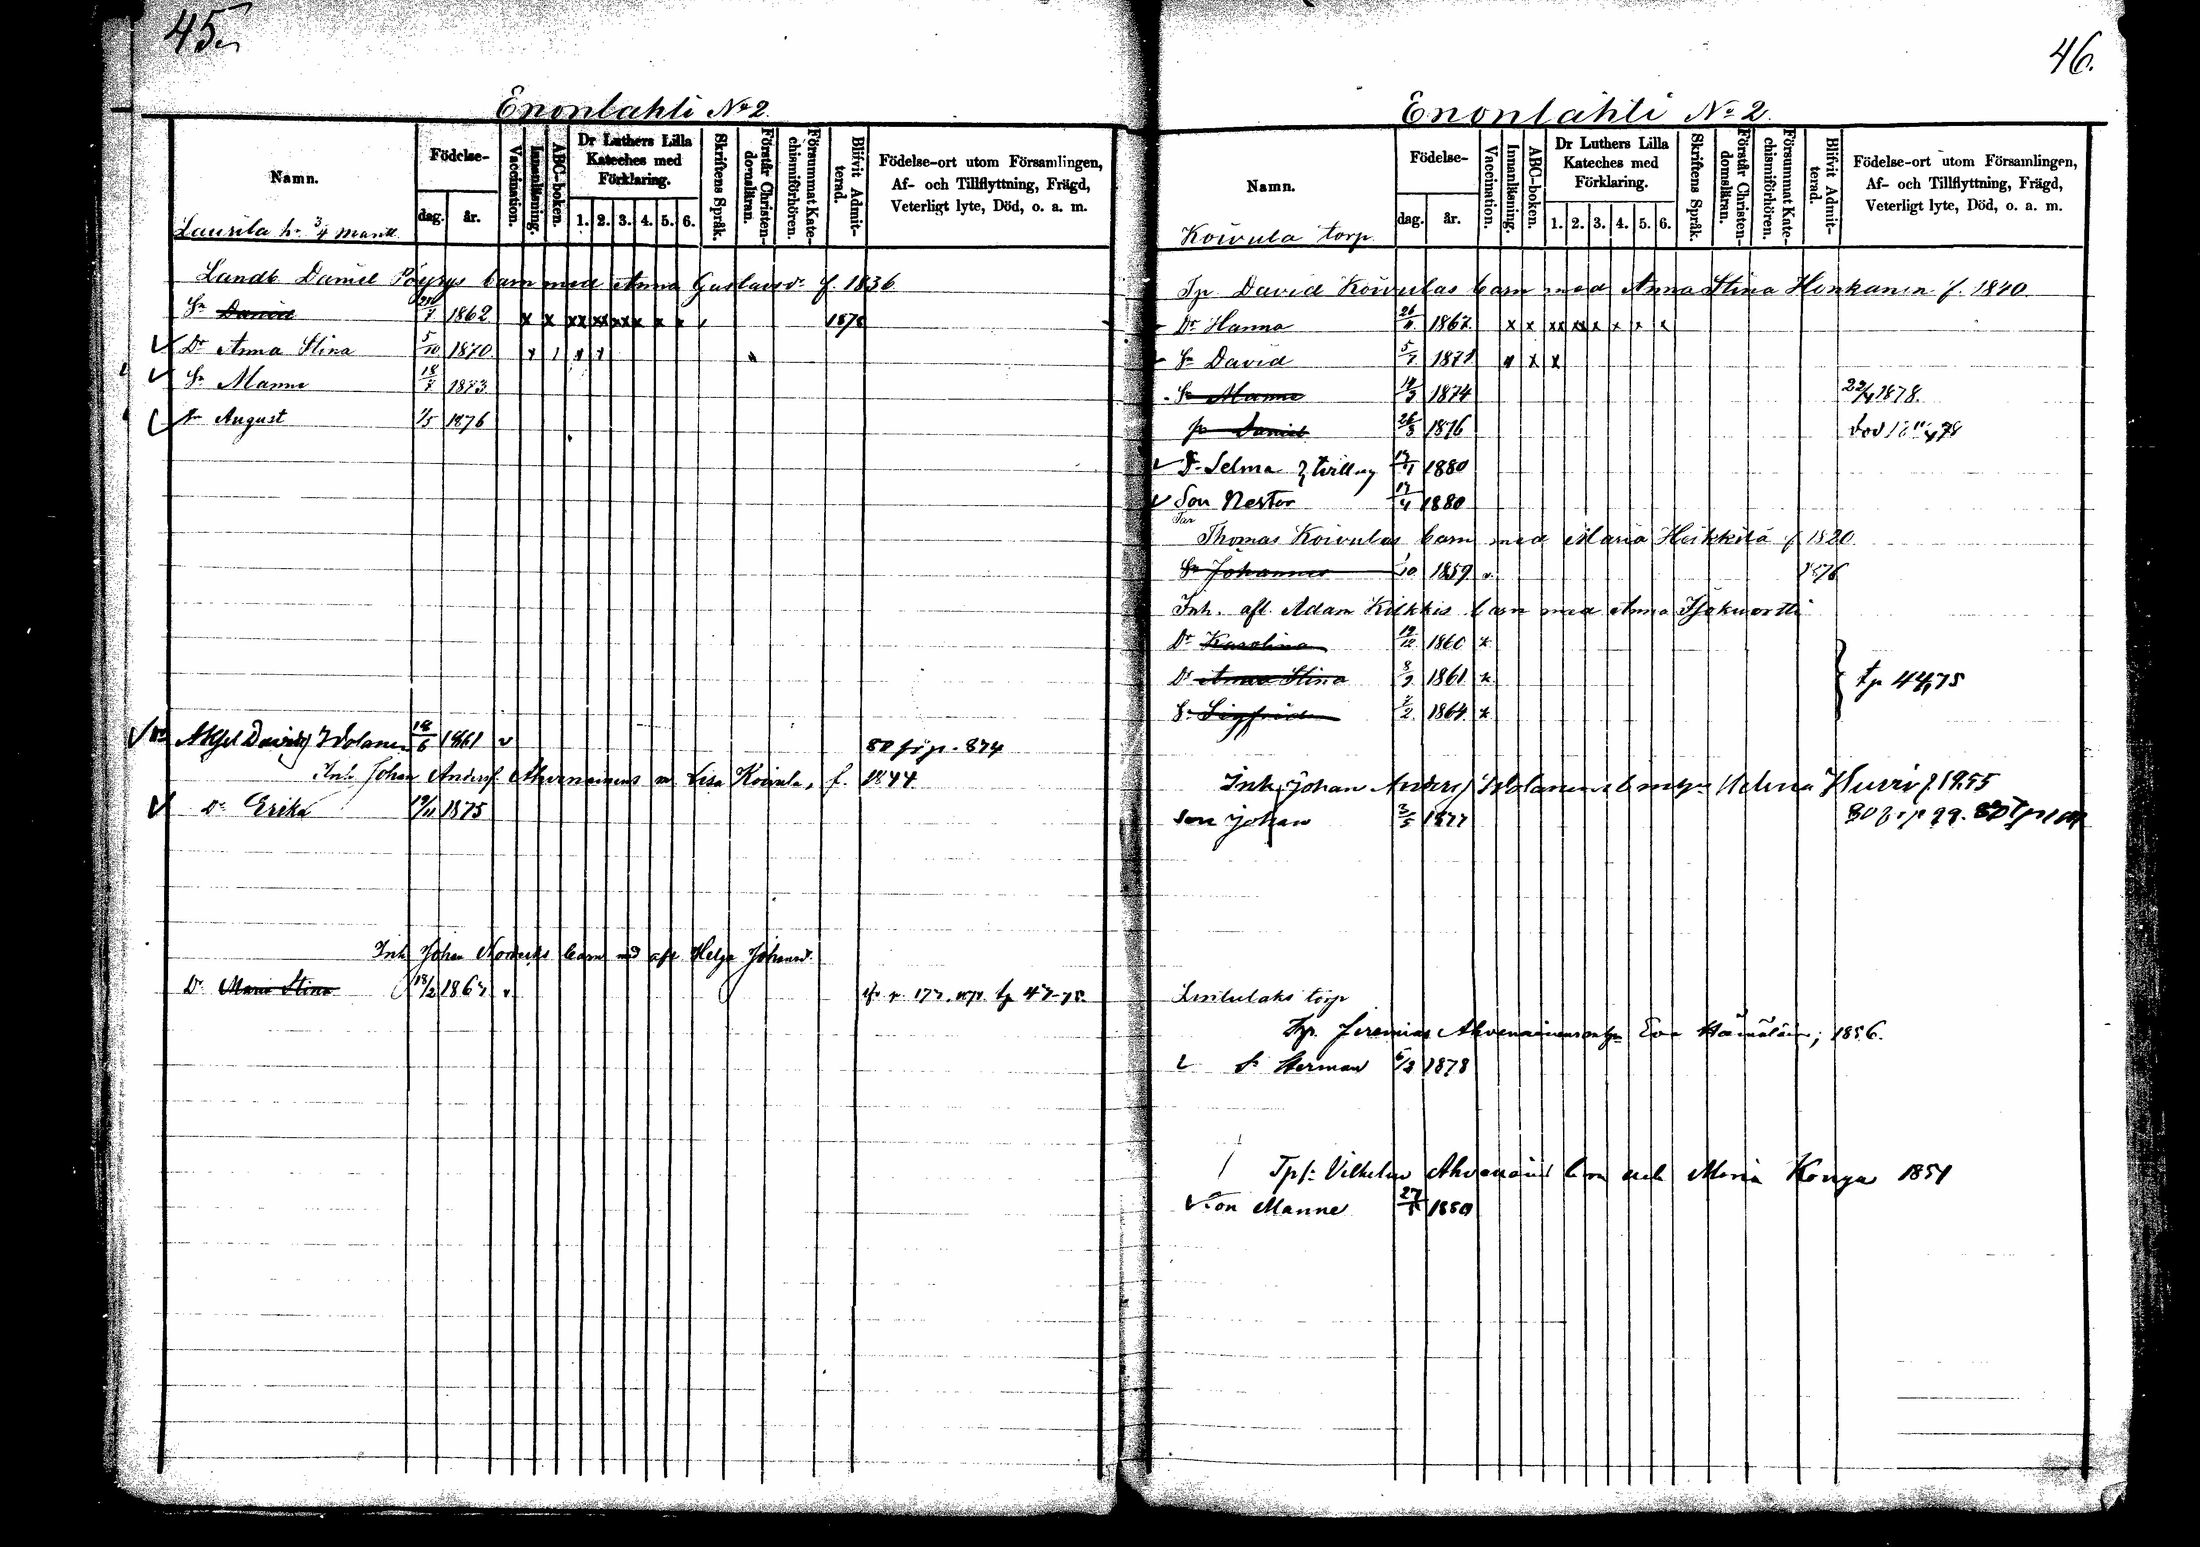 45.
Enonlahti No 2.
Namn.
Födelse-
dag.
år.
Vaccination.
Innanläsning.
ABC-boken.
Dr Luthers Lilla Kateches med Förklaring.
1. 2. 3. 4. 5. 6.
Skriftens Språk.
Förstår Christen-domsläran.
Försummat Kate-chismiförhören.
Blifvit Admit-terad.
Födelse-ort utom Församlingen, Af- och Tillflyttning, Frägd, Veterligt lyte, Död, o. a. m.
Laurila h. 3/4 mantl
Landb Daniel Pöyrys barn med Anna Gustavsdr f. 1836
Sn Daniel 1862 x x xx xx xx x x x 1878
Dr Anna Stina 5/10 1870
Sn Manne 18/7 1873
Sn August 1/5 1876
Axel David 18/6 1861 v
Inh Johan Andersf Ahvenainens m. Lisa Koivula, f. 1844
Dr Erika 19/11 1875
Inh Johan barn med afl Helga Johansd.
Dr Maria Stina 18/2 1867 v
46.
Enonlahti No 2.
Namn.
Födelse-
dag.
år.
Vaccination.
Innanläsning.
ABC-boken.
Dr Luthers Lilla Kateches med Förklaring.
1. 2. 3. 4. 5. 6.
Skriftens Språk.
Förstår Christen-domsläran.
Försummat Kate-chismiförhören.
Blifvit Admit-terad.
Födelse-ort utom Församlingen, Af- och Tillflyttning, Frägd, Veterligt lyte, Död, o. a. m.
Koivula torp.
Tp. David Koivulas barn med Anna Stina Hinkanen f. 1840.
Dr Hanna 1867 x x xx xx x x x x
Sn David 1871 x x x
Sn Manne 14/3 1874 22/4 1878.
Sn Daniel 26/3 1876
Dr Selma tvilling 17/4 1880
Son Nestor 17/4 1880
Thomas Koivulas barn med Maria Heikkilä f 1820
Sn Johannes 1/10 1859 v 1876
Inh. afl Adam Kilkkis barn med Anna
Dr Karolina 19/12 1860 x
Dr Anna Stina 8/9 1861 x
Sn Sigfrid 1864 x
tp 44,75
Inh Johan Andersf Helena Hurri f. 1855
Son Johan 1877
torp
Tp. Jeremias Eva Hämäläin, 1856.
Sn Herman 6/3 1878
Vilhelm barn med Maria Konga 1851
Son Manne 1880